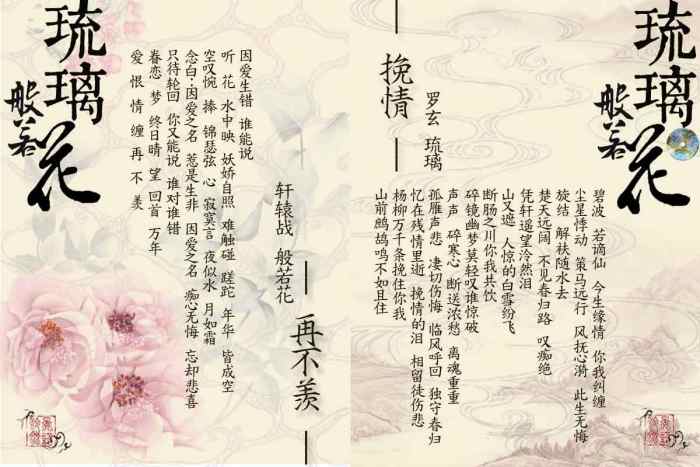 琉璃
般若花
再不羡
轩辕战 般若花
因爱生错 谁能说
听 花 水中映 妖娇自照 难触碰 蹉跎 年华 皆成空
空叹惋 捧 锦瑟弦 心 寂寞言 夜似水 月如霜
念白:因爱之名 惹是生非 因爱之名 痴心无悔 忘却悲喜
只待轮回 你又能说 谁对谁错
眷恋 梦 终日晴 望 回首 万年
爱 恨 情 缠 再 不 羡
琉璃
般若花
挽情
罗玄 琉璃
碧波 若谪仙 今生缘情 你我纠缠
尘星悸动 策马远行 风抚心漪 此生无悔
旋结 解袂随水去
楚天远阔 不见春归路 叹痴绝
凭轩遥望泠然泪
山又遮 人惊的白雪纷飞
断肠之川你我共饮
碎镜幽梦莫轻叹谁惊破
声声 碎寒心 断送浓愁 离魂重重
孤雁声悲 凄切伤悔 临风呼回 独守春归
忆在残情里逝 挽情的泪 相留徒伤悲
杨柳万千条挽住你我
山前鹧鸪鸣不如且住